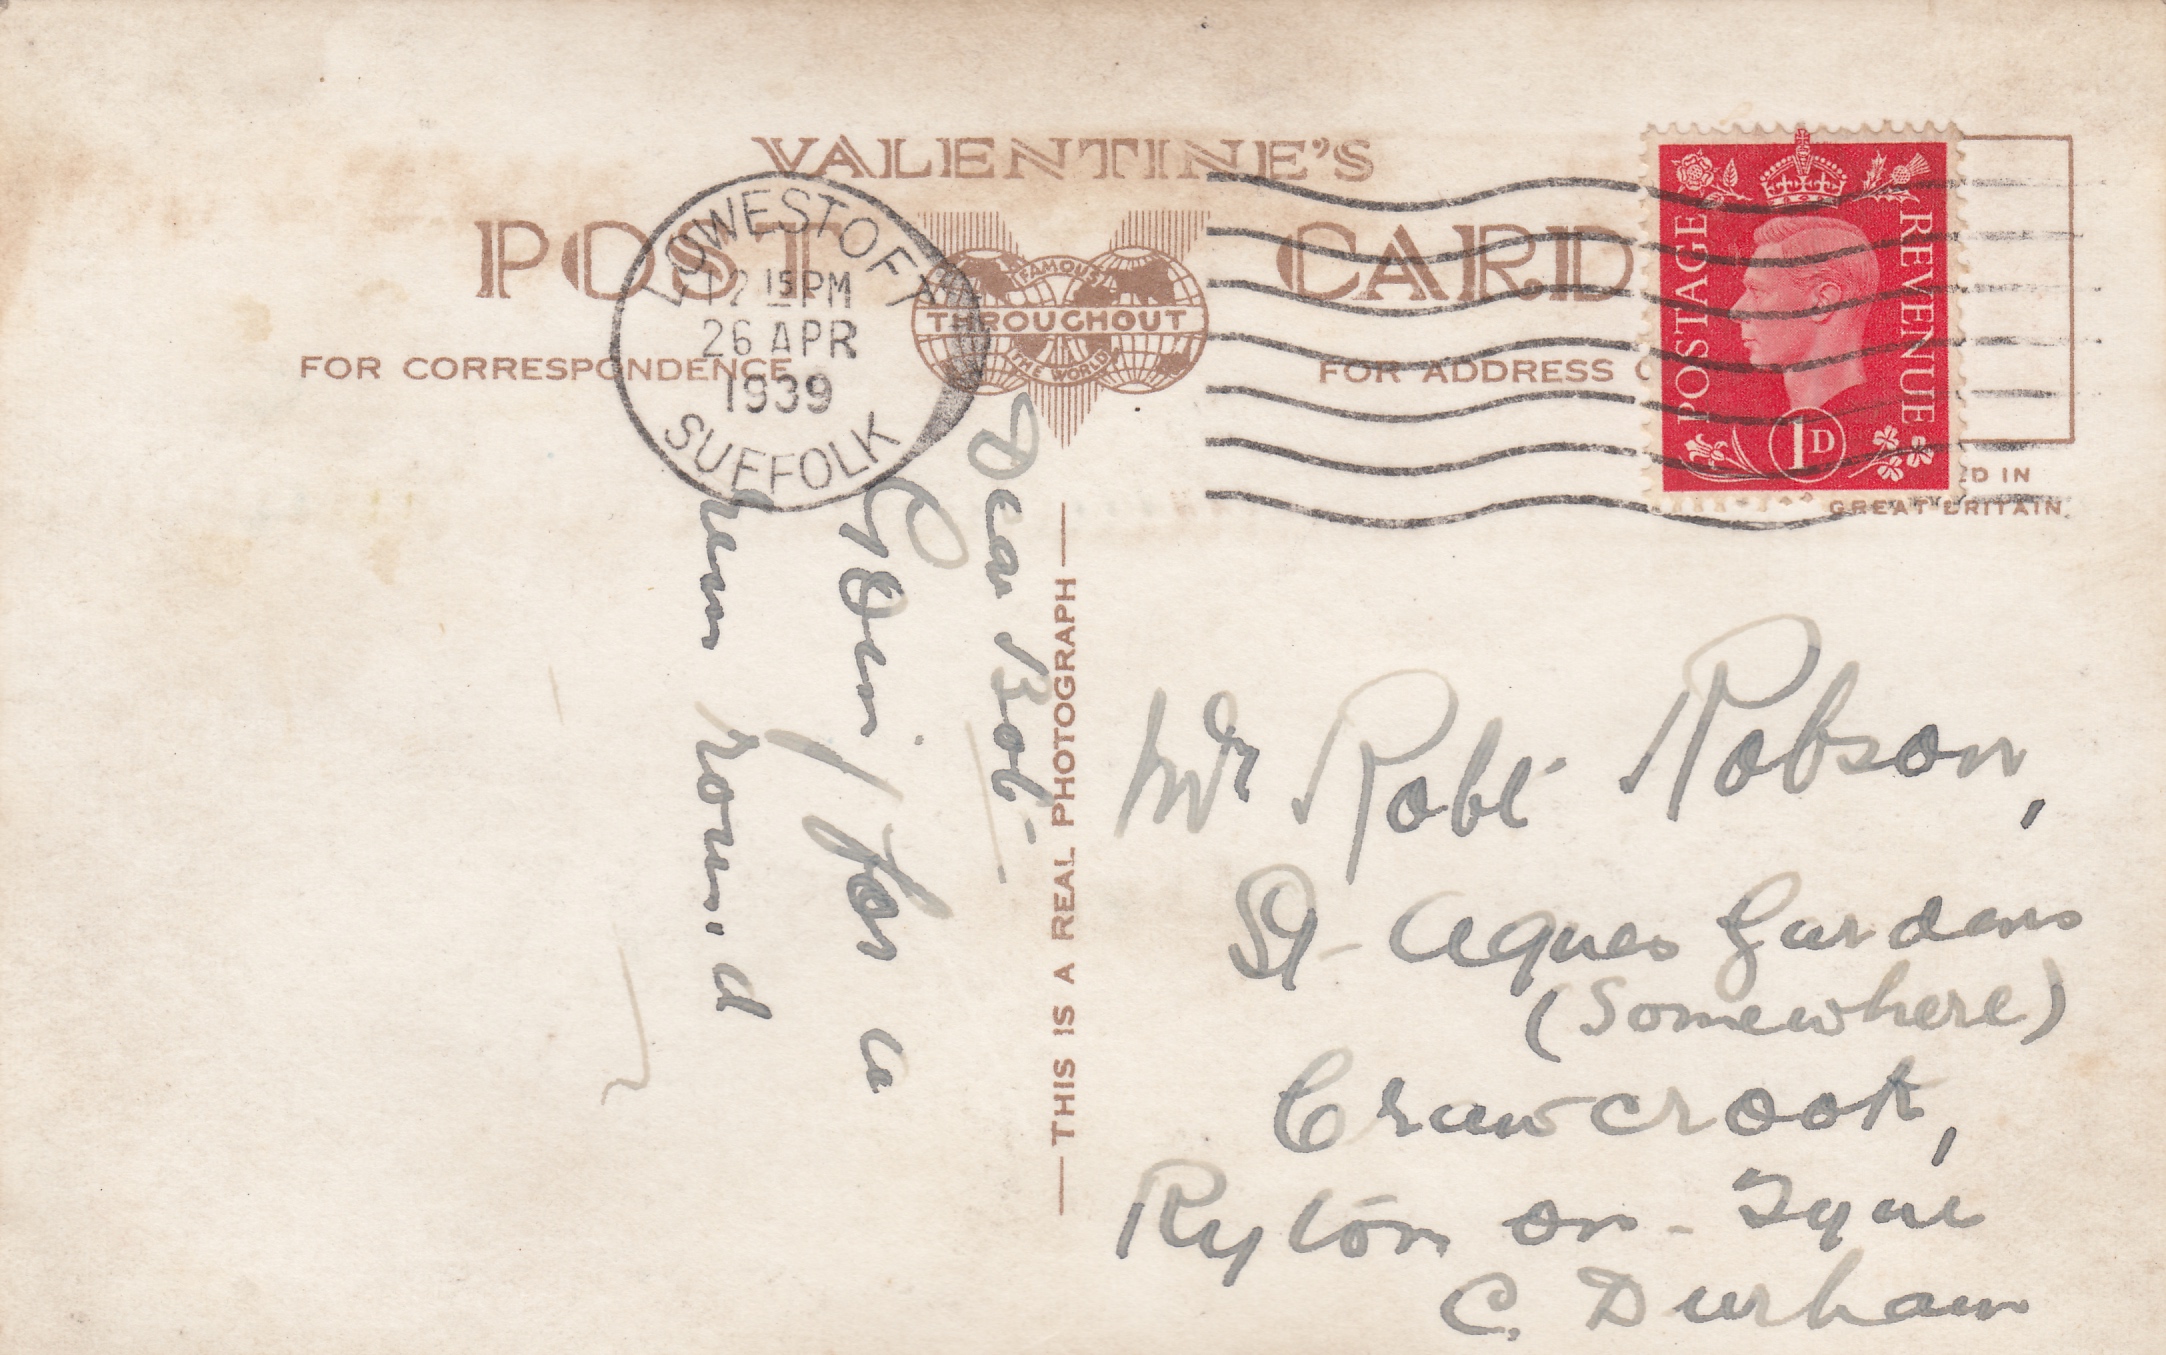 VALENTINE'S
POST CARD
FAMOUS
THROUGHOUT
THE WORLD
FOR CORRESPONDENCE
FOR ADDRESS
LOWESTOFT
12 15 PM
26 APR
1939
SUFFOLK
POSTAGE
REVENUE
1D
D IN
GREAT BRITAIN
THIS IS A REAL PHOTOGRAPH
Dear Bob.
for a
round
Mr Robt Robson,
St Agnes Gardens
(Somewhere)
Crawcrook,
Ryton on-Tyne
C. Durham